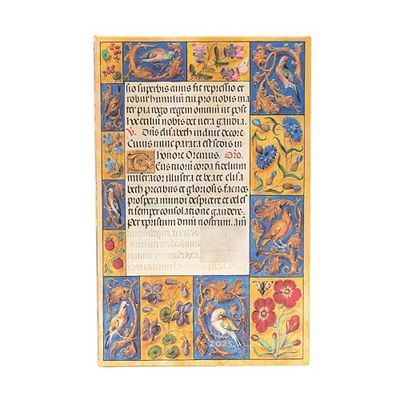 sio superbis auris fit repressio et
robur humiliū tui pro nobis ma
ter pia rego regem omniū ut post
hoc exiliū nobis det vera gaudia.
V. Diis elisabeth in diuic decore
Cuius nunc parata est sedis in
Honore Oremus. Oro.
Tuorū corda fidelium
miserator illustra et beate elisa
beth precibus et gloriosis, facnos
prospera mundi despicere et celes
ti semper consolatione gaudere.
Per xpristum dnm nostrum. am̄
2025